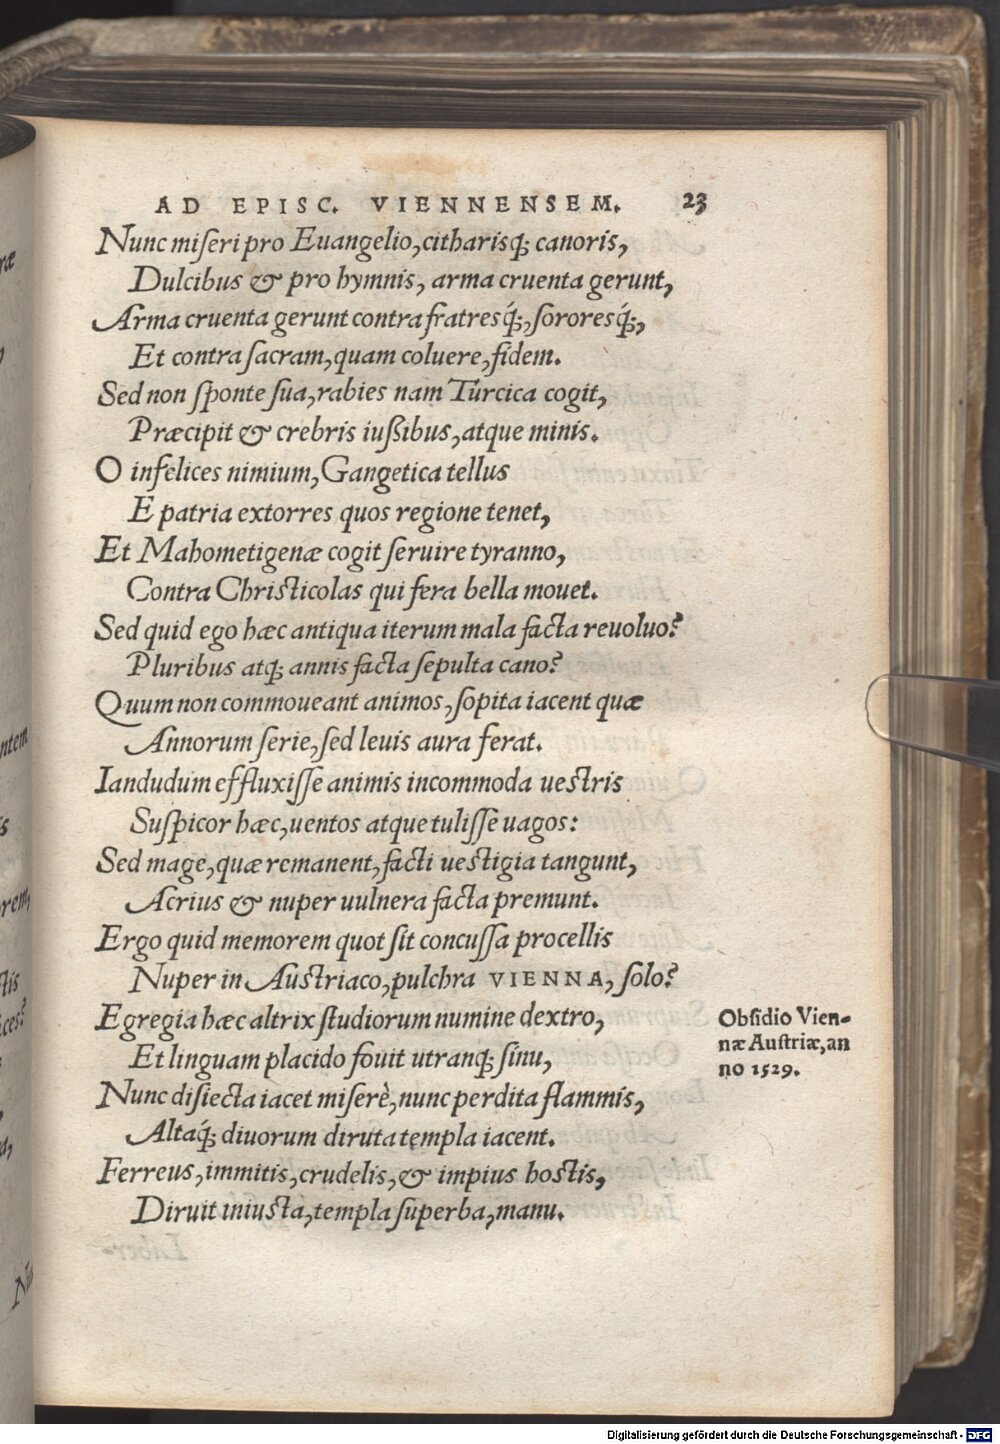 AD EPISC. VIENNENSEM. 23
Nunc miſeri pro Euangelio, citharisq; canoris,
Dulcibus & pro hymnis, arma cruenta gerunt,
Arma cruenta gerunt contra fratresq́;, ſororesq́;,
Et contra ſacram, quam coluere, fidem.
Sed non ſponte ſua, rabies nam Turcica cogit,
Præcipit & crebris iußibus, atque minis.
O infelices nimium, Gangetica tellus
E patria extorres quos regione tenet,
Et Mahometigenæ cogit ſeruire tyranno,
Contra Chriſticolas qui fera bella mouet.
Sed quid ego hæc antiqua iterum mala facta reuoluo?
Pluribus atq; annis facta ſepulta cano?
Quum non commoueant animos, ſopita iacent quæ
Annorum ſerie, ſed leuis aura ferat.
Iandudum effluxiſſe animis incommoda ueſtris
Suſpicor hæc, uentos atque tuliſſe uagos:
Sed mage, quæ remanent, facti ueſtigia tangunt,
Acrius & nuper uulnera facta premunt.
Ergo quid memorem quot ſit concuſſa procellis
Nuper in Auſtriaco, pulchra VIENNA, ſolo?
Egregia hæc altrix ſtudiorum numine dextro,
Et linguam placido fouit utranq; ſinu,
Nunc diſiecta iacet miſerè, nunc perdita flammis,
Altaq́; diuorum diruta templa iacent.
Ferreus, immitis, crudelis, & impius hoſtis,
Diruit iniuſta, templa ſuperba, manu.
Obſidio Vien-
næ Auſtriæ, an
no 1529.
Digitalisierung gefördert durch die Deutsche Forschungsgemeinschaft - DFG